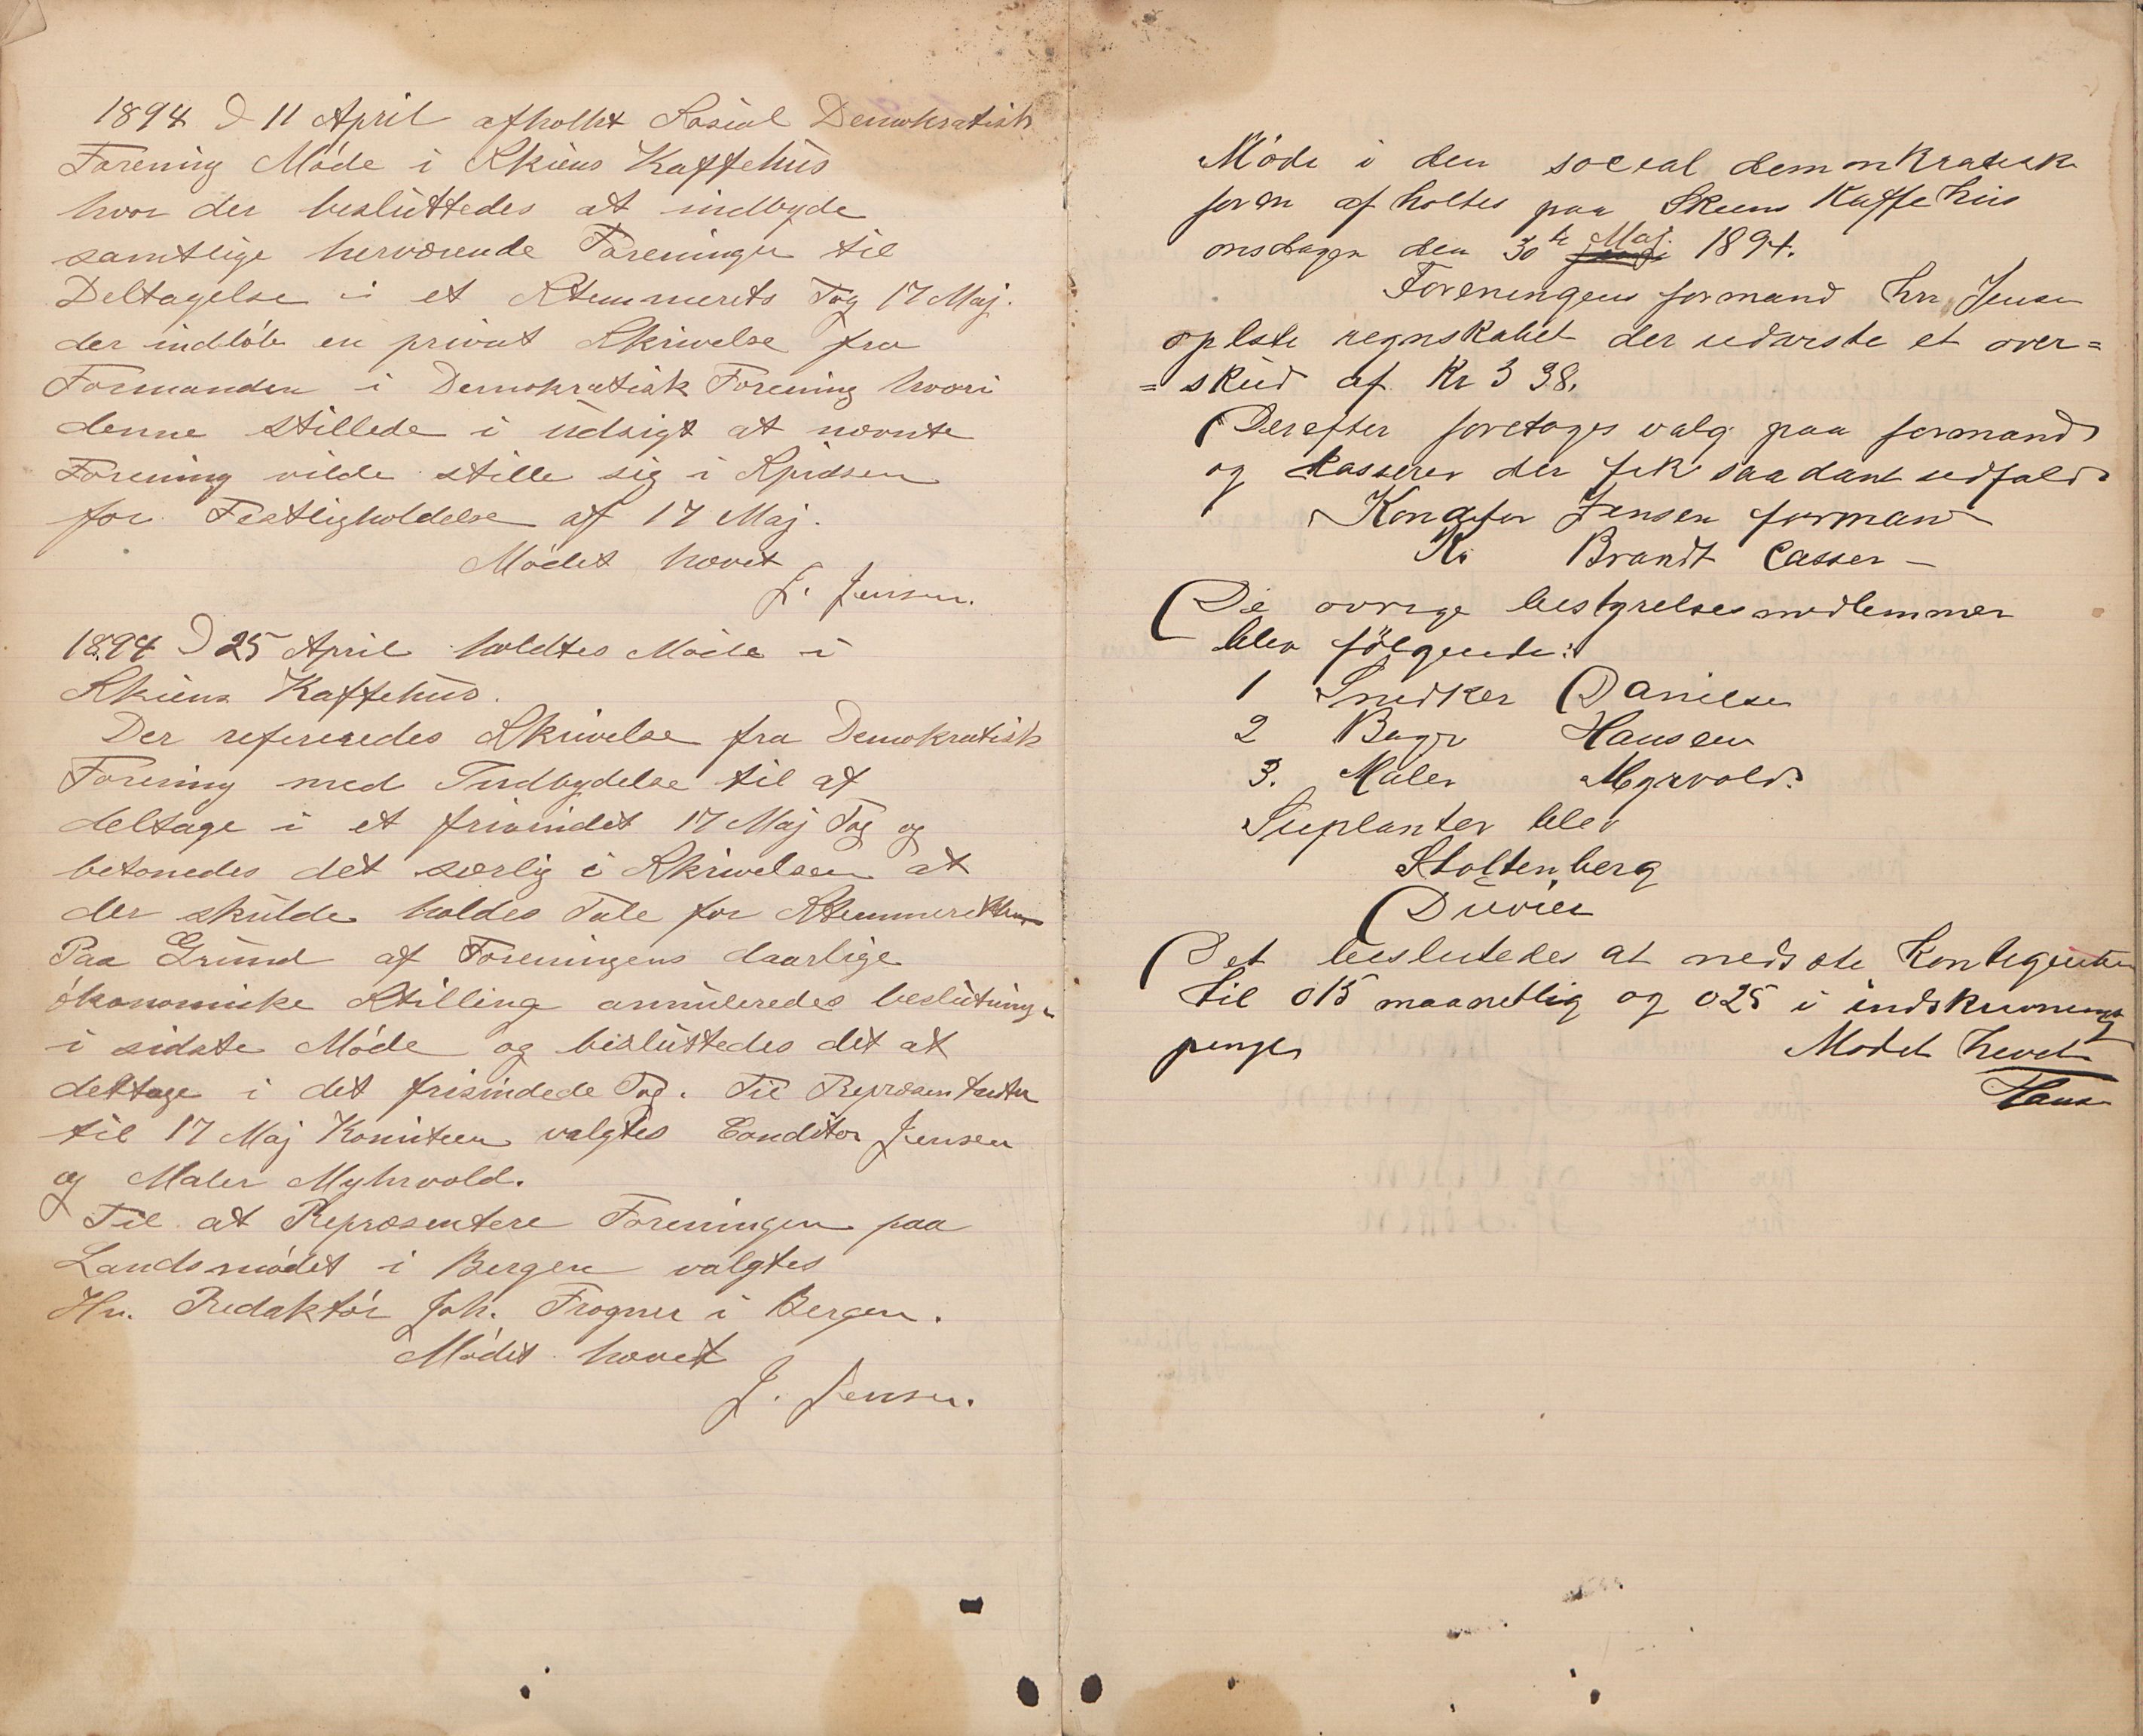 1894 D 11 April afholdt Sosial Demokratisk
Forening Möde i Skiens Kaffehus
hvor der besluttedes at indbyde
samtlige herværende Foreninger til
Deltagelse i et Stemmerets Tog 17 Maj.
der indlöb en privat Skrivelse fra
Formanden i Demokratisk Forening hvori
denne stillede i udsigt at nævnte
Forening vilde stille sig i Spidsen
for Festligholdelse af 17 Maj.
Mödet hævet
J. Jensen.
1894 D 25 April holdtes Möde i
Skiens Kaffehus.
Der refereredes Skrivelse fra Demokratisk
Forening med Indbydelse til at
deltage i et frisindet 17 Maj Tog og
betonedes det særlig i Skrivelsen at
der skulde holdes Tale for Stemmeretten
Paa Grund af Foreningens daarlige
ökonomiske Stilling annuleredes beslutningen
i sidste Möde og besluttedes det at
deltage i det frisindede Tog. Til Repræsentanter
til 17 Maj Komiteen valgtes Conditor Jensen
og Maler Myhrvold.
Til at Repræsentere Foreningen paa
Landsmödet i Bergen valgtes
Hr. Redaktör Joh. Frogner i Bergen.
Mödet hævet
J. Jensen.
Möde i den social demmkratisk
foren af holtes paa Skiens Kaffe hus
onsdagen den 30te Maj. 1894.
Foreningens formand hrr Jensen
oplste regnskabet der udviste et over=
=skud af Kr 3 38.
Derefter foretoges valg paa formand
og kasserer der fik saadant udfald
Konditor Jensen formand
Brandt Casser –
De øvrige bestyrelsesmedlemmer
blev fölgende:
1 Snedker Danielsen
2 Bager Hansen
3. Maler Myrvold.
Suplanter blev
Stoltenberg
Det besluttedes at nedsete Kontigenten
til 015 maanetlig og 025 i indskrivnings
penger Mödet hevet
Hansen